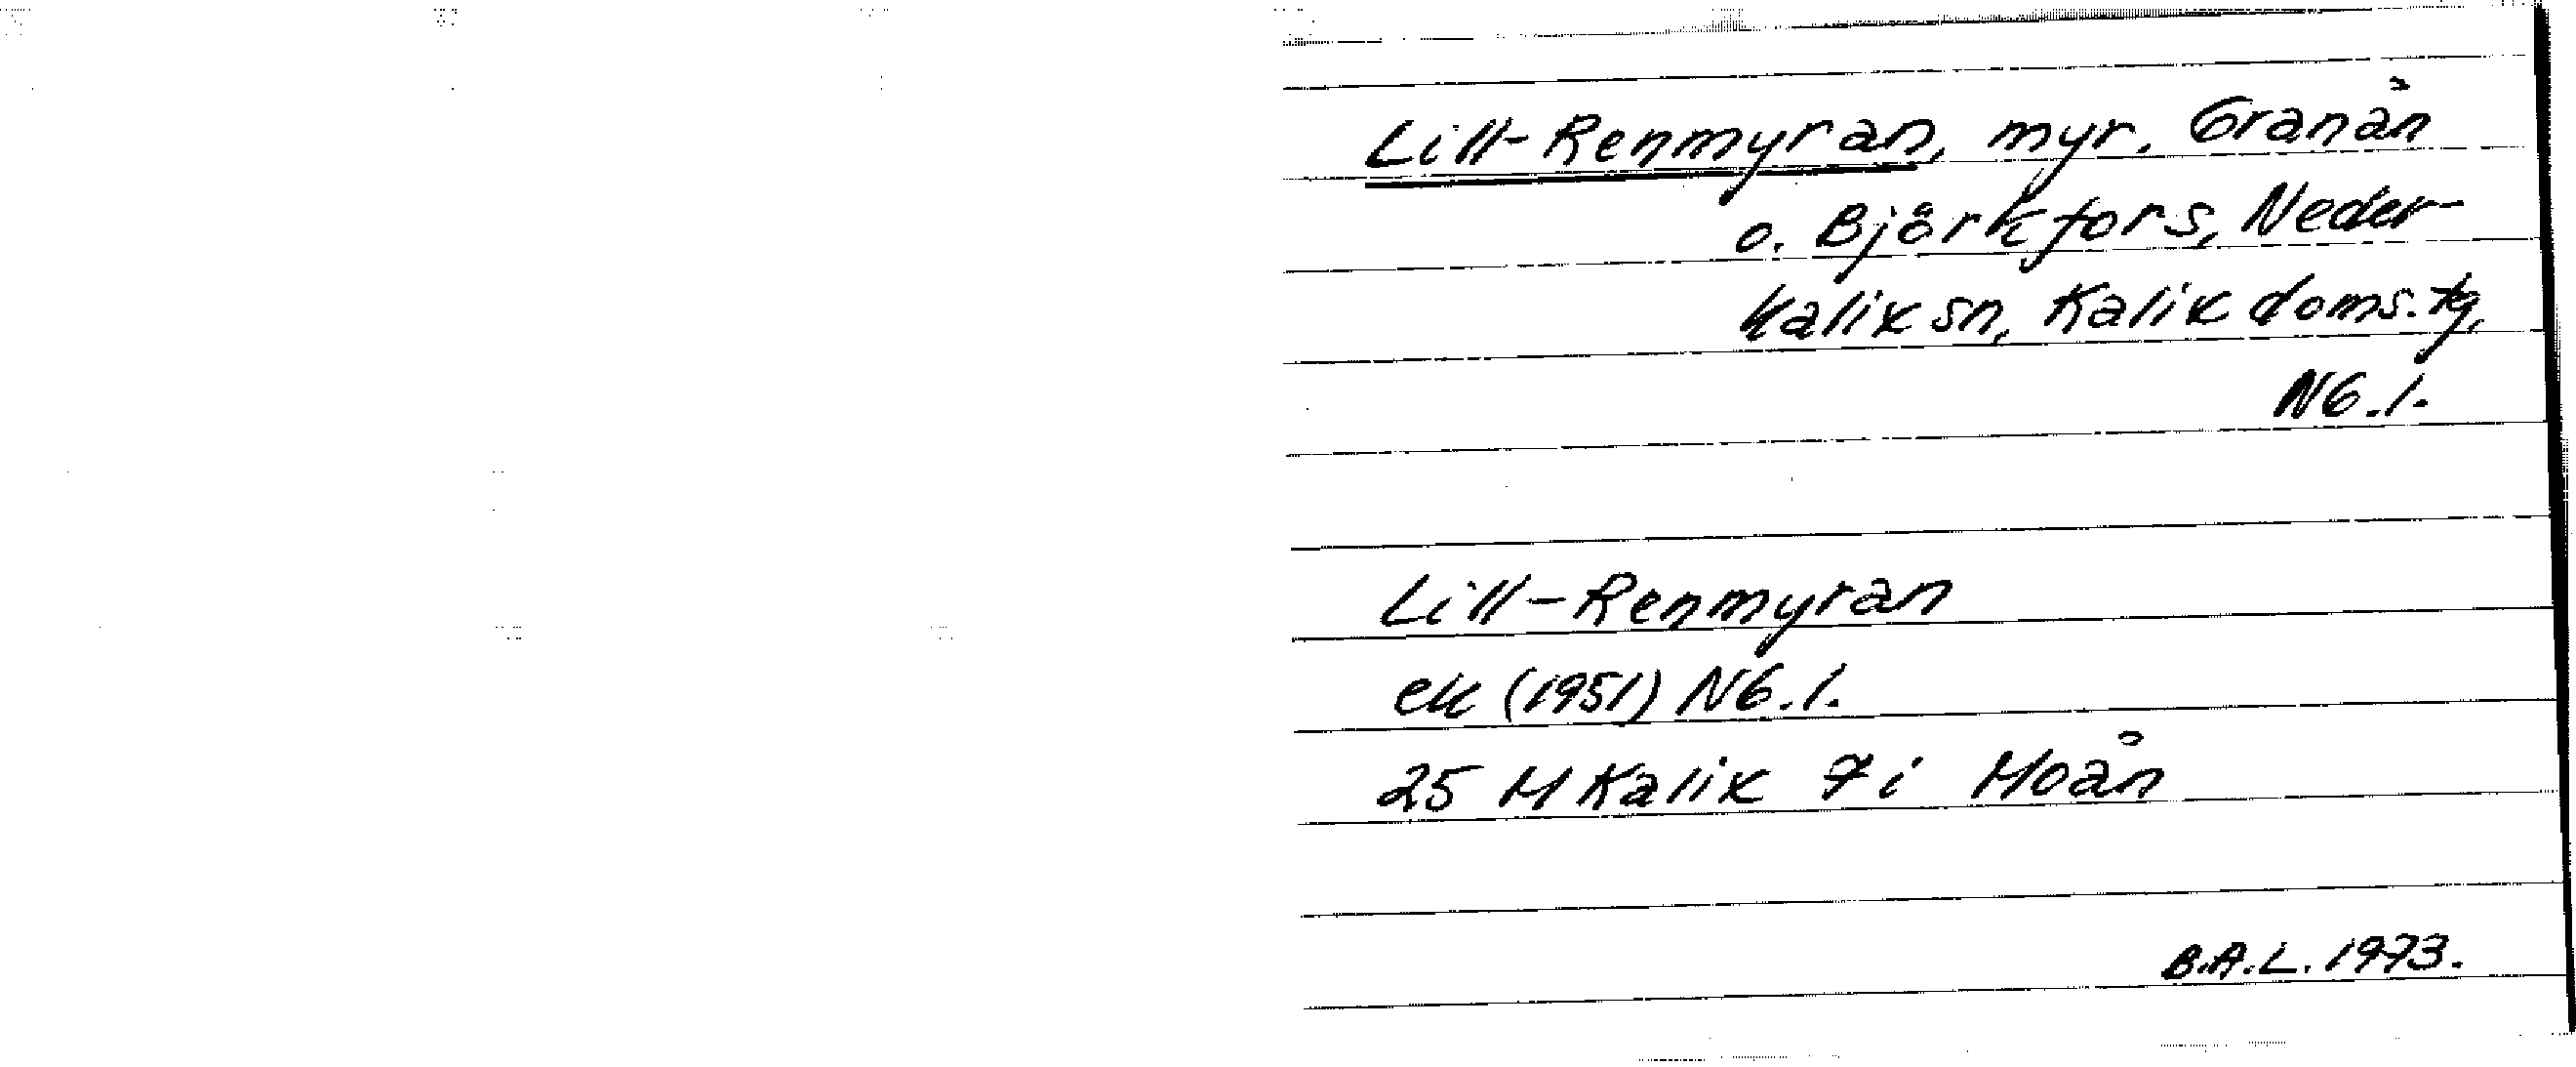 Lill-Renmyran, myr. Granån
o. Björkfors, Neder-
kalix sn, Kalix doms. tg,
NG.l.
Lill-Renmyran
ek (1951) NG.l.
25 M Kalix 7i Moån
B.A.L. 1973.